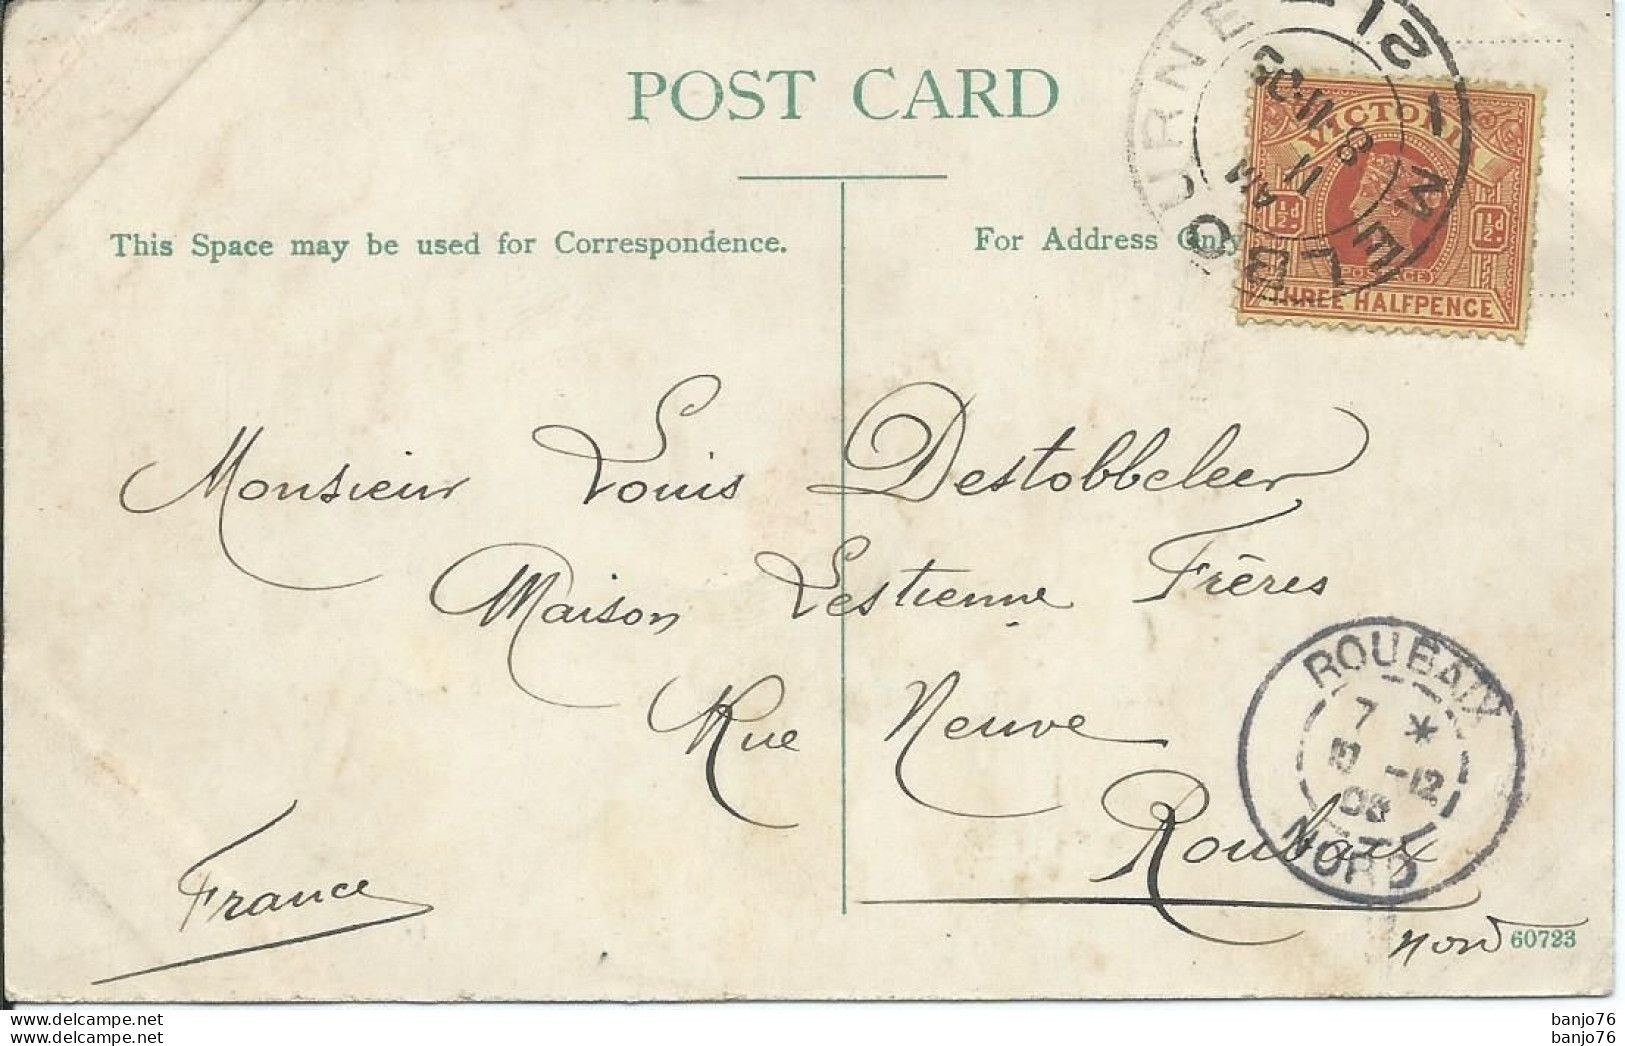 POST CARD
This Space may be used for Correspondence.
For Address Only
VICTORIA
1½d
1½d.
POSTAGE
THREE HALFPENCE
MELBOURNE
11 AM
8 11
Monsieur Louis Destobbeleer
Maison Lestienne Frères
Rue Neuve
Roubaix
Nord
France
ROUBAIX
7 *
-12
08
NORD
60723
www.delcampe.net
www.delcampe.net
banjo76
banjo76